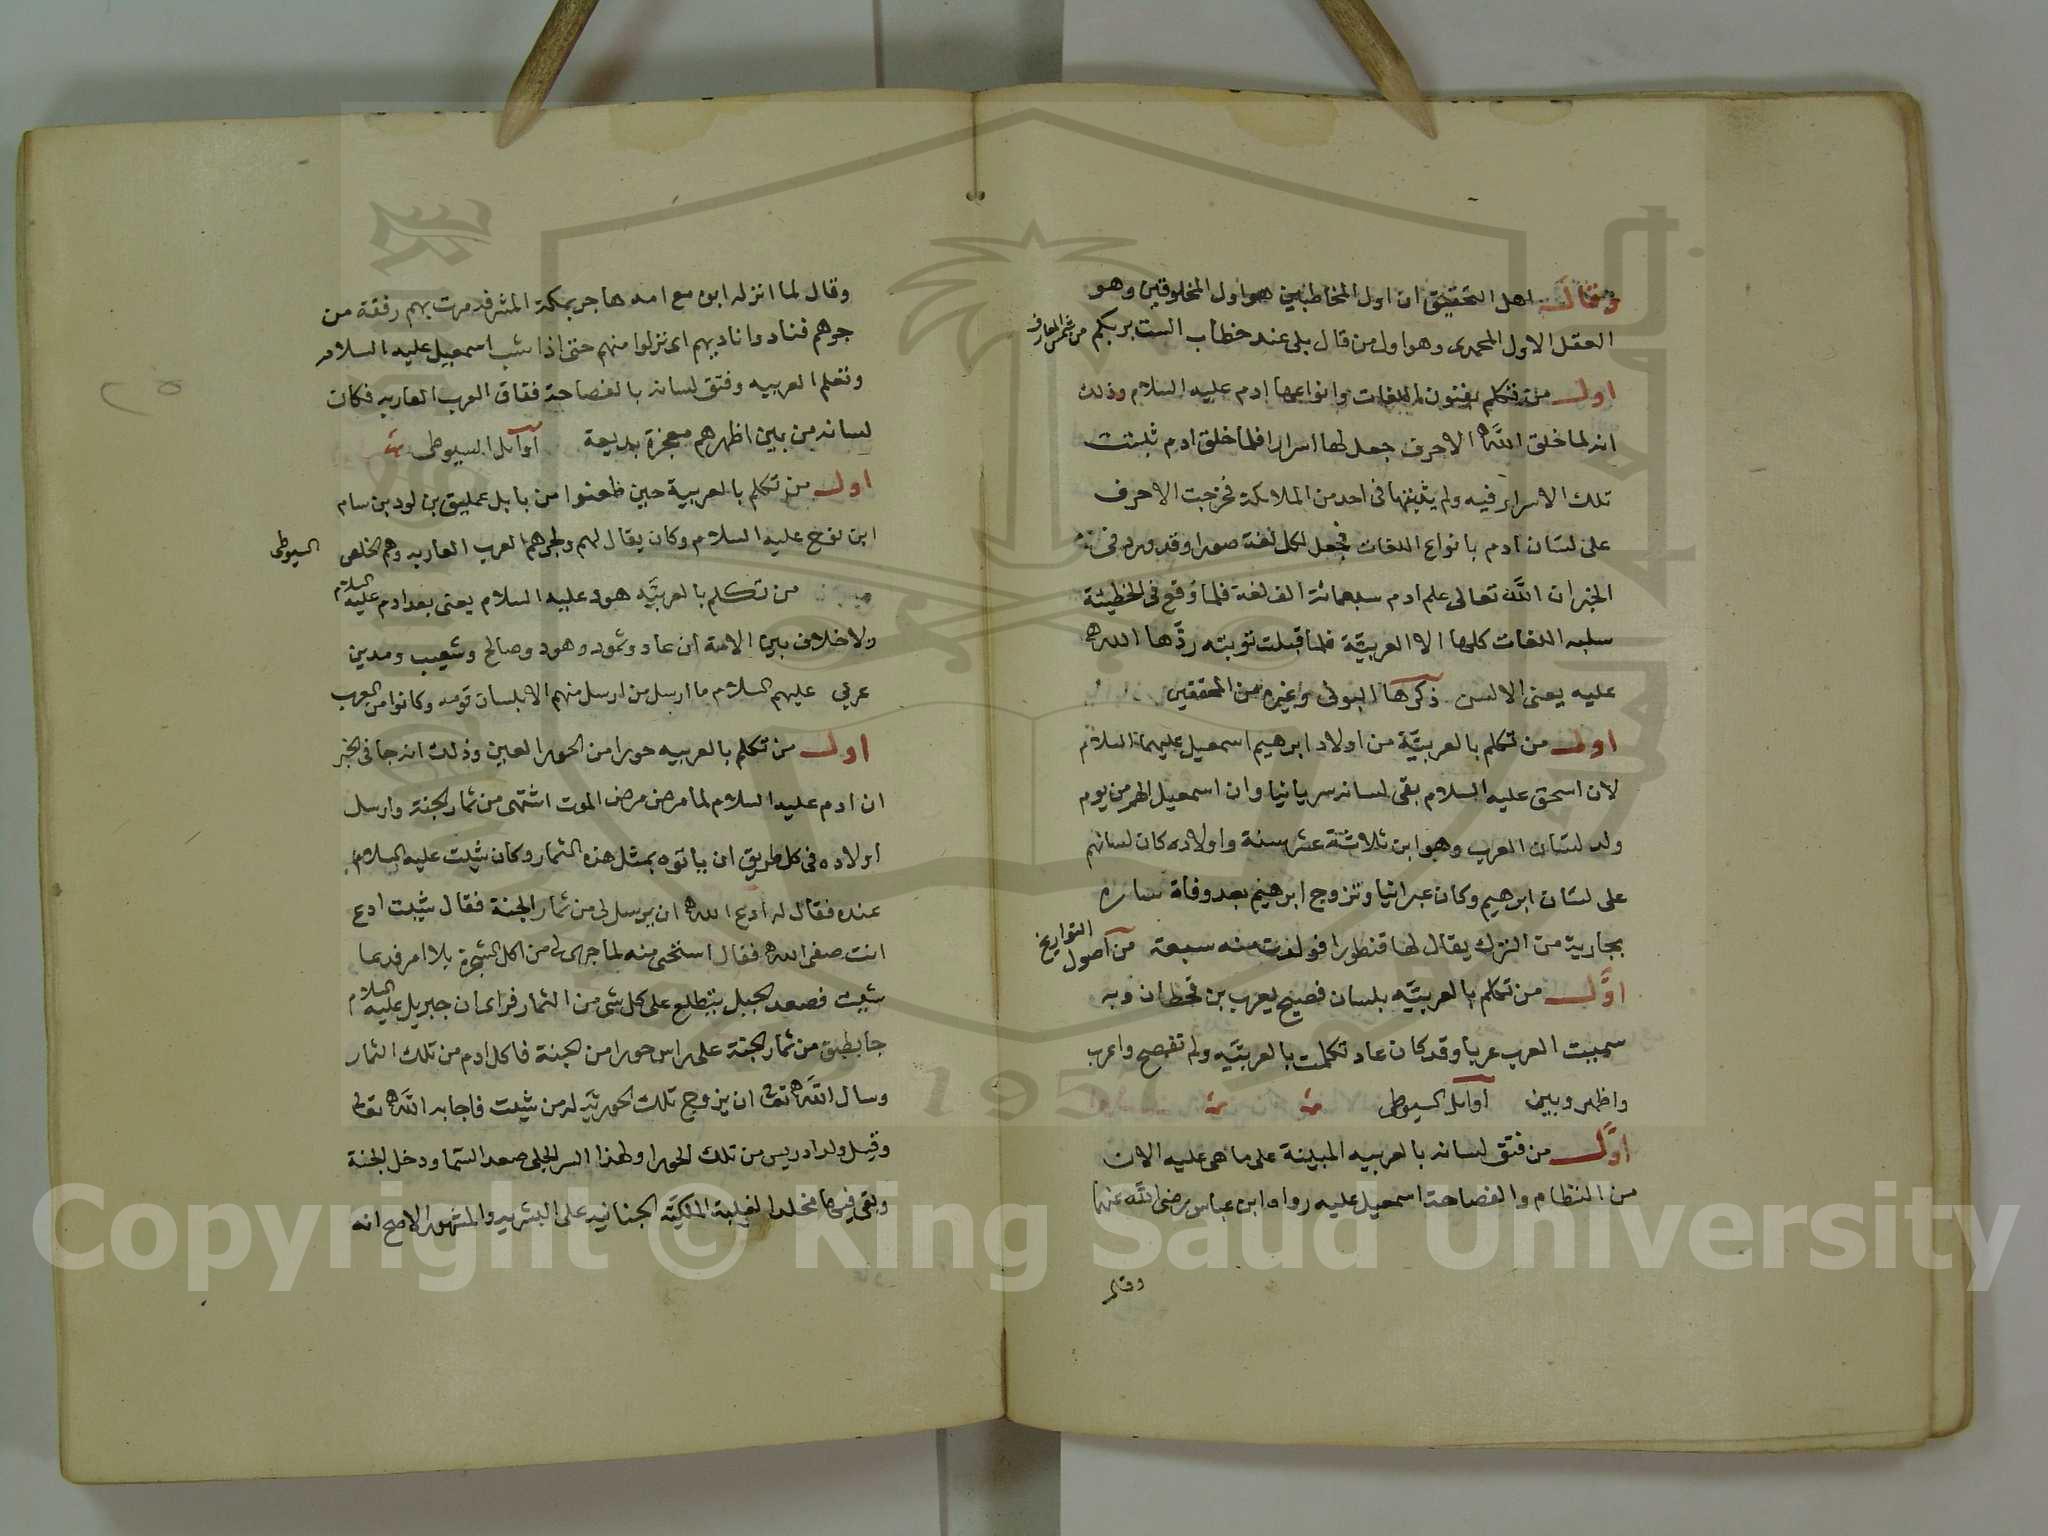 وقال اهل التحقيق ان اول المخاطبين هو اول المخلوقين وهو
العقل الاول المحمدى وهو اول من قال بلى عند خطاب الست بربكم من شمس المعارف
اول من تكلم بفنون اللغات وانواعها ادم عليه السلام وذلك
انه لما خلق الله الاحرف جعل لها اسرارا فلما خلق ادم ثبتت
تلك الاسرار فيه ولم يثبتها فى احد من الملائكة فخرجت الاحرف
على لسان ادم بانواع اللغات فجعل لكل لغة صورا وقد ورد فى
الخبر ان الله تعالى علم ادم سبعمائة الف لغة فلما وقع فى الخطيئة
سلبه اللغات كلها الا العربية فلما قبلت توبته ردها الله
عليه يعنى الالسن ذكرها البونى وغيره من المحققين
اول من تكلم بالعربية من اولاد ابرهيم اسمعيل عليهما السلام
لان اسحق عليه السلام بقى لسانه سريانيا وان اسمعيل الهم من يوم
ولد لسان العرب وهو ابن ثلاثة عشر سنة واولاده كان لسانهم
على لسان ابرهيم وكان عبرانيا وتزوج ابرهيم بعد وفاة ساره
بجارية من الترك يقال لها قنطورا فولدت منه سبعة من اصول التواريخ
اول من تكلم بالعربيه بلسان فصيح يعرب بن قحطان وبه
سميت العرب عربا وقد كان عاد تكلمت بالعربيه ولم تفصح واعرب
واظهر وبين اوائل السيوطى
اول من فتق لسانه بالعربيه المبينة على ما هى عليه الان
من النظام والفصاحة اسمعيل عليه رواه ابن عباس رضى الله عنهما
وقال
وقال لما انزله ابوه مع امه هاجر بمكة المشرفه مرت بهم رفقة من
جرهم فنادوا ناديهم اى نزلوا منهم حتى اذا شب اسمعيل عليه السلام
وتعلم العربيه وفتق لسانه بالفصاحة ففاق العرب العاربه فكان
لسانه من بين اظهرهم معجزة بديعة اوائل السيوطى
اول من تكلم بالعربية حين ظعنوا من بابل عمليق بن لود بن سام
ابن نوح عليه السلام وكان يقال لهم ولجرهم العرب العاربه وهم الخلص السيوطى
من تكلم بالعربيه هود عليه السلام يعنى بعد ادم عليه السلام
ولا خلاف بين الامة ان عاد وثمود وهود وصالح وشعيب ومدين
عربى عليهم السلام ما ارسل من ارسل منهم الا بلسان قومه وكانوا من العرب
اول من تكلم بالعربيه حورا من الحور العين وذلك انه جا فى الخبر
ان ادم عليه السلام لما مرض مرض الموت اشتهى من ثمار الجنة وارسل
اولاده فى كل طريق ان ياتوه بمثل هذه الثمار وكان شيث عليه السلام
عنده فقال له ادع الله ان يرسل لى من ثمار الجنة فقال شيث ادع
انت صفى الله فقال استحى منه لما جرى لى من اكل الشجرة بلا امر فدعا
شيث فصعد الجبل يتطلع على كل شى من الثمار فراى ان جبريل عليه السلام
جا بطبق من ثمار الجنة على راس حورا من الجنة فاكل ادم من تلك الثمار
وسال الله تعالى ان يزوج تلك الحوريه له من شيث فاجابه الله تعالى
وقيل ولد ادريس من تلك الحورا ولهذا السر الجلى صعد السما ودخل الجنة
وبقى فيها مخلدا لغلبة الملكيه الجنانيه على البشريه والمشهور الاصح انه
Copyright © King Saud University
1957